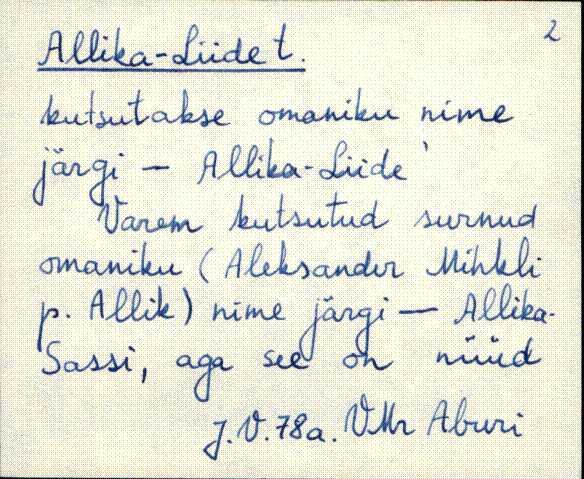 2
Allika-Liide t.
kutsutakse omaniku nime
järgi — Allika-Liide'
Varem kutsutud surnud
omaniku (Aleksander Mihkli
p. Allik) nime järgi — Allika-
Sassi, aga see on nüüd
J.V. 78a. VMr Aburi